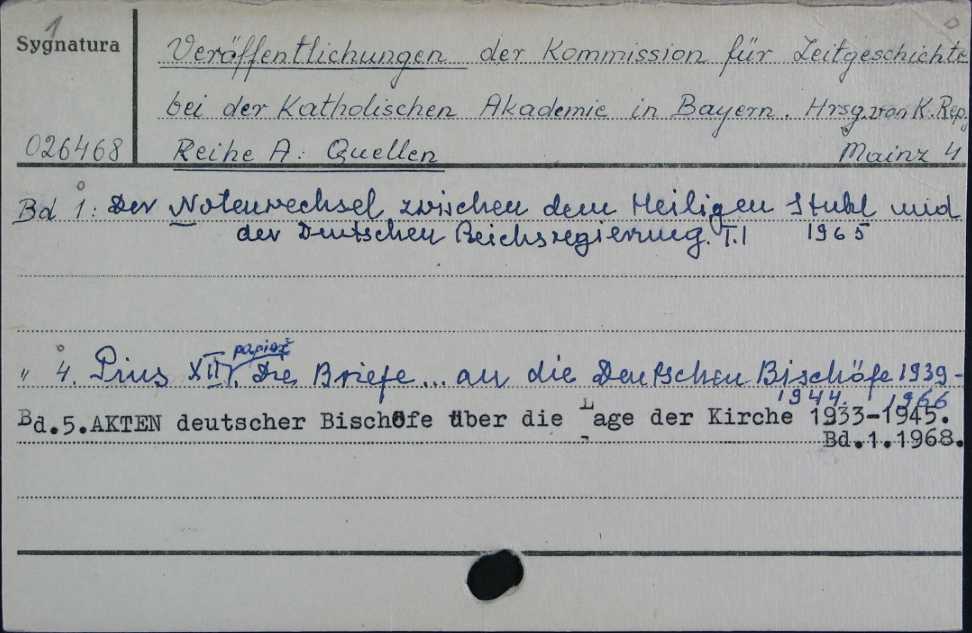 1
Sygnatura
Veröffentlichungen der Kommission für Zeitgeschichte
bei der Katholischen Akademie in Bayern. Hrsg. von K. Rep.
026468 Reihe A: Quellen Mainz 4
Bd 1: Der Notenwechsel zwischen dem Heiligen Stuhl und
der Deutschen Reichsregierung. T.I 1965
papież
" 4. Pius XII, Die Briefe... an die Deutschen Bischöfe 1939-
1944. 1966
Bd.5.AKTEN deutscher Bischöfe über die Lage der Kirche 1933-1945.
Bd.1.1968.